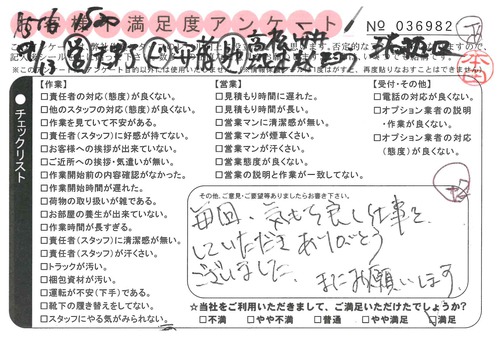 お客様不満足度アンケート
No 036982
【作業】
□責任者の対応(態度)が良くない。
□他のスタッフの対応(態度)が良くない。
□作業を見ていて不安がある。
□責任者(スタッフ)に好感が持てない。
□お客様への挨拶が出来ていない。
□ご近所への挨拶・気遣いが無い。
□作業開始前の内容確認がなかった。
□作業開始時間が遅れた。
□荷物の取り扱いが雑である。
□お部屋の養生が出来ていない。
□作業時間が長すぎる。
□責任者(スタッフ)に清潔感が無い。
□責任者(スタッフ)が汗くさい。
□トラックが汚い。
□梱包資材が汚い。
□運転が不安(下手)である。
□靴下の履き替えをしてない。
□スタッフにやる気がみられない。
【営業】
□見積もり時間に遅れた。
□見積もり時間が長い。
□営業マンに清潔感が無い。
□営業マンが煙草くさい。
□営業マンが汗くさい。
□営業態度が良くない。
□営業の説明と作業が一致してない。
【受付・その他】
□電話の対応が良くない。
□オプション業者の説明
・作業が良くない。
□オプション業者の対応
(態度)が良くない。
●チェックリスト
その他、ご意見・ご要望等ありましたらお書き下さい。
毎回、気もち良く仕事を
していただきありがとう
ございました。またお願いします。
☆当社をご利用いただきまして、ご満足いただけたでしょうか?
□不満 □やや不満 □普通 □やや満足 □満足